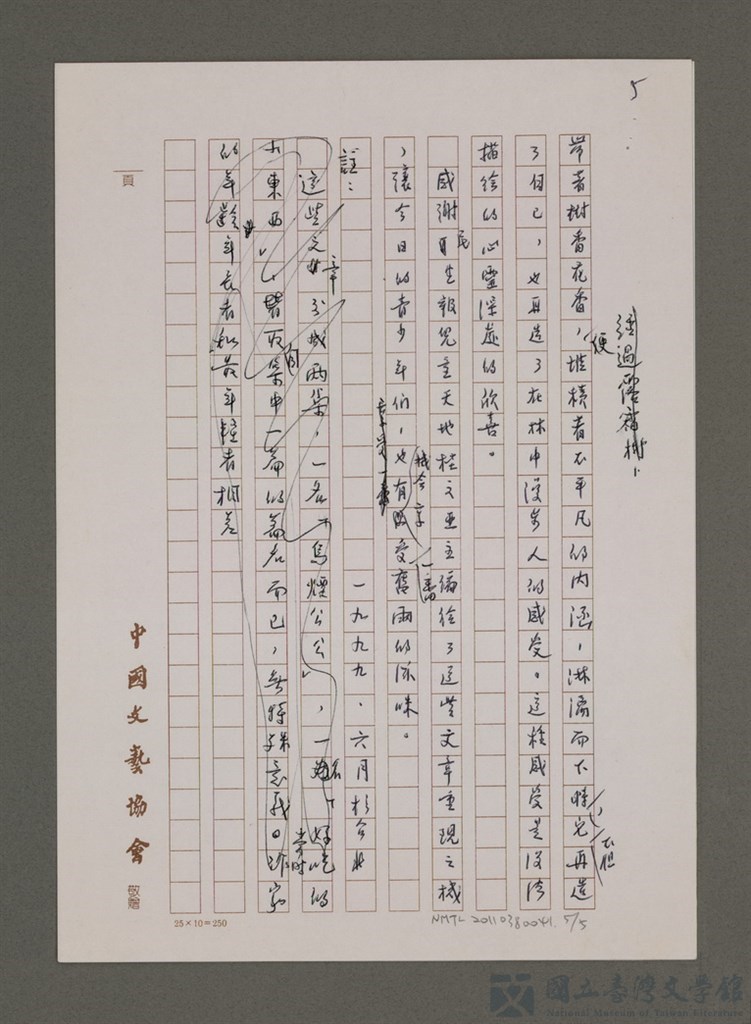 5
經過雪霜樹、
帶著樹香花香，堆積著不平凡的內涵，淋漓而下時它再造
便
不但
了自己，也再造了在林中漫步人的感受。這種感受是沒法
描繪的心靈深處的欣喜。
感謝民生報兒童天地桂文亞主編給了這些文章重現之機
，讓今日的青少年們，也有受舊雨的滋味。
機會享
一番
一九九九、六月
註：
這些文章分成兩集，一名「烏煙公公」，一名「好吃的
小東西」皆取自集中一篇的篇名而已，無特殊意義。
當時
的年齡年長者和最年輕者相差
頁
中國文藝協會
敬贈
25×10=250
NMTL 20110380041. 5/5
國立臺灣文學館
National Museum of Taiwan Literature